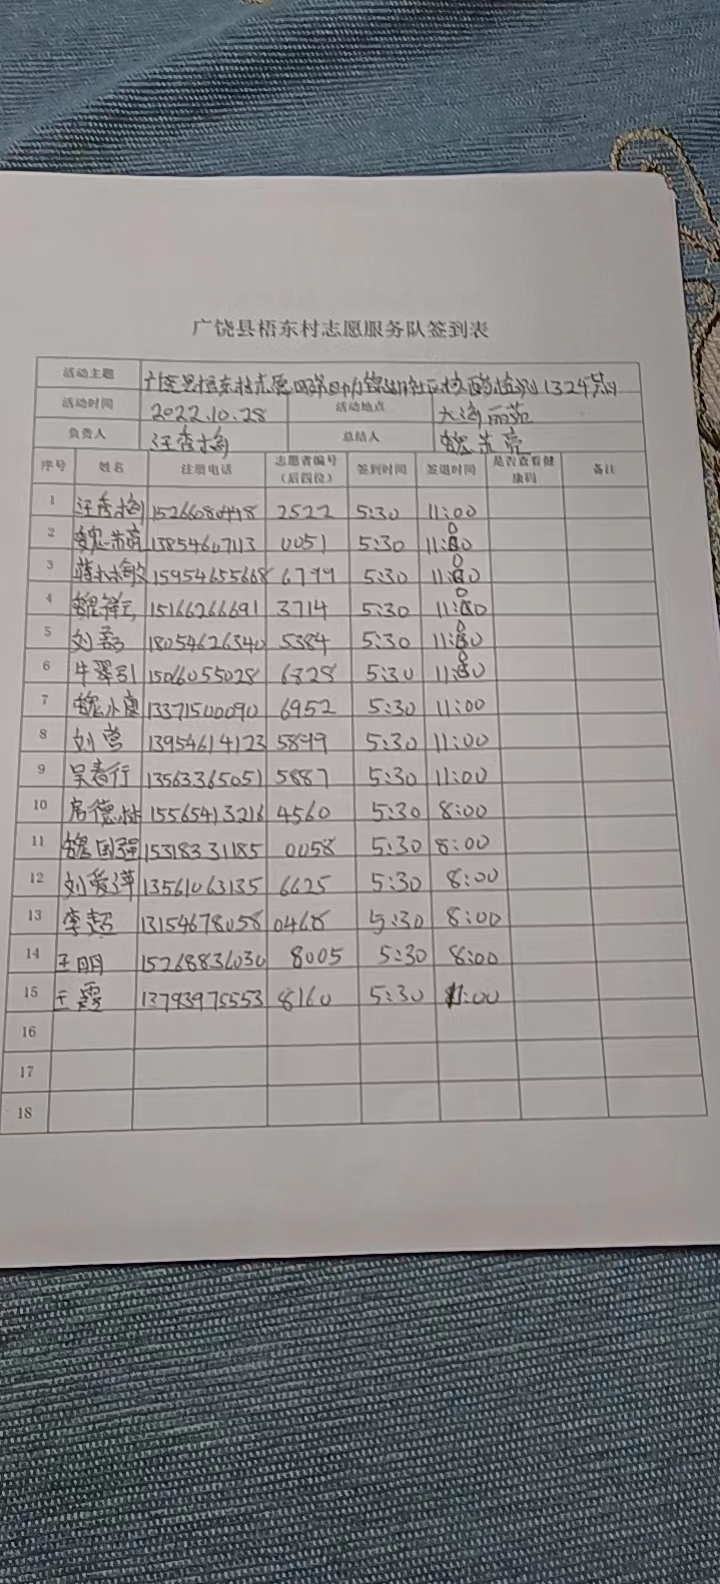 广饶县梧东村志愿服务队签到表
活动主题 广饶县梧东村志愿 社区核酸检测1324
活动时间 2022.10.28 活动地点 大海丽苑
负责人 汪秀梅 总结人 魏
序号 姓名 注册电话 志愿者编号（后四位） 签到时间 签退时间 是否查看健康码 备注
1 汪秀梅 15266080448 2522 5:30 11:00
2 魏 13854607113 0051 5:30 11:00
3 蒋 敏 15954655668 6799 5:30 11:00
4 魏 15166266691 3714 5:30 11:00
5 刘 18054626340 5384 5:30 11:00
6 牛翠引 15066055028 6828 5:30 11:00
7 魏小康 13371500090 6952 5:30 11:00
8 刘莺 13954614123 5899 5:30 11:00
9 吴春行 13563365051 5887 5:30 11:00
10 德 15565413216 4560 5:30 8:00
11 魏国强 15318331185 0058 5:30 8:00
12 刘爱萍 13561063135 6625 5:30 8:00
13 李超 13154678058 0468 5:30 8:00
14 王明 15268836030 8005 5:30 8:00
15 王霞 13793975553 8160 5:30 11:00
16
17
18